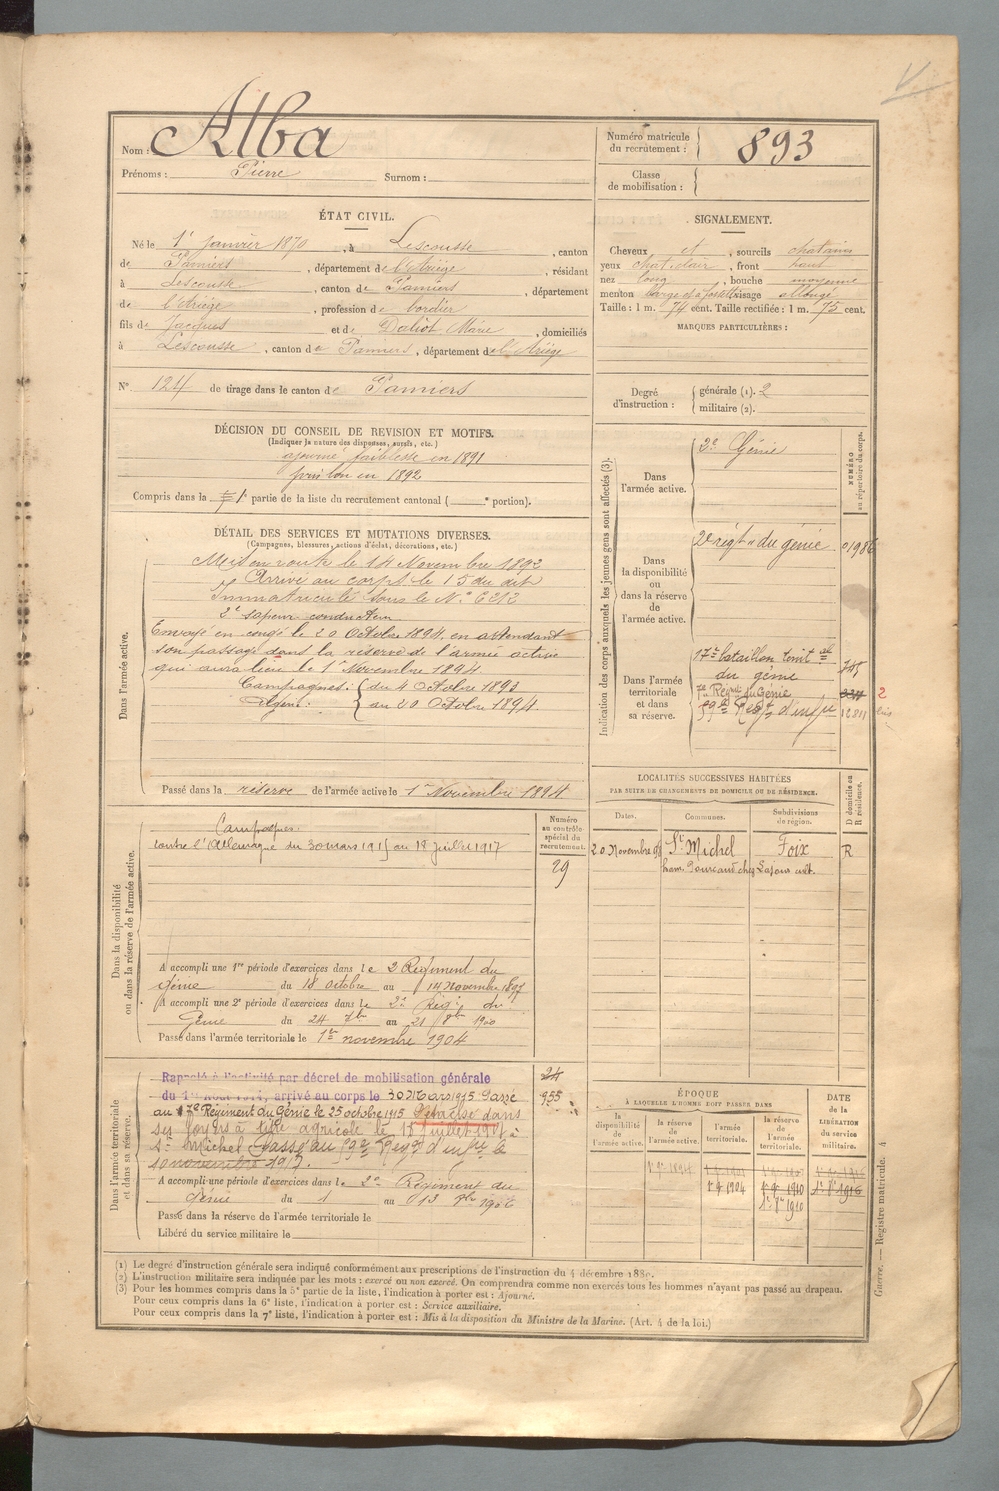 Nom : Alba
Prénoms : Pierre Surnom :
Numéro matricule du recrutement : 893
Classe de mobilisation :
ÉTAT CIVIL.
Né le 1er Janvier 1870, à Lescousse, canton
de Pamiers, département de l'Ariège, résidant
à Lescousse, canton de Pamiers, département
de l'Ariège, profession de bordier
fils de Jacques et de Daliot Marie, domiciliés
à Lescousse, canton de Pamiers, département de l'Ariège
N° 124 de tirage dans le canton de Pamiers
SIGNALEMENT.
Cheveux et, sourcils chatains
yeux chat. clair, front haut
nez long, bouche moyenne
menton large et à fossette visage allongé
Taille : 1 m. 74 cent. Taille rectifiée : 1 m. 75 cent.
MARQUES PARTICULIÈRES :
Degré d'instruction : générale (1). 2
militaire (2).
DÉCISION DU CONSEIL DE REVISION ET MOTIFS.
(Indiquer la nature des dispenses, sursis, etc.)
ajourné faiblesse en 1891
pris bon en 1892
Compris dans la 1e partie de la liste du recrutement cantonal ( e portion).
DÉTAIL DES SERVICES ET MUTATIONS DIVERSES.
(Campagnes, blessures, actions d'éclat, décorations, etc.)
Dans l'armée active.
Mis en route le 14 Novembre 1892
Arrivé au corps le 15 du dit
Immatriculé sous le N° 6212
2e sapeur conducteur
Envoyé en congé le 20 Octobre 1894, en attendant
son passage dans la réserve de l'armée active
qui aura lieu le 1er Novembre 1894
Campagnes : du 4 Octobre 1893
Algérie : au 20 Octobre 1894.
Passé dans la réserve de l'armée active le 1er Novembre 1894
Indication des corps auxquels les jeunes gens sont affectés (3).
NUMÉRO au répertoire du corps.
Dans l'armée active.
2e Génie
Dans la disponibilité ou dans la réserve de l'armée active.
2e régt du génie 01986
Dans l'armée territoriale et dans sa réserve.
17e bataillon territal
du génie 745
7e Regmt du Génie
Regt d'infie 12811
2 bis
LOCALITÉS SUCCESSIVES HABITÉES
PAR SUITE DE CHANGEMENTS DE DOMICILE OU DE RÉSIDENCE.
D domicile ou R résidence.
Dates. Communes. Subdivisions de région.
20 Novembre 98 St Michel Foix R
Dans la disponibilité ou dans la réserve de l'armée active.
Numéro au contrôle spécial du recrutement.
29
Campagnes :
contre l'Allemagne du 30 mars 1915 au 18 juillet 1917
A accompli une 1re période d'exercices dans le 2 Régiment du
génie du 18 octobre au 14 novembre 1897
A accompli une 2e période d'exercices dans le 2e Regt du
Génie du 24 7bre au 21 8bre 1900
Passé dans l'armée territoriale le 1er novembre 1904
Dans l'armée territoriale et dans sa réserve.
24
955
Rappelé à l'activité par décret de mobilisation générale
du 1er Aout 1914, arrivé au corps le 30 Mars 1915 Passé
au 17e Régiment du Génie le 25 octobre 1915 Détaché dans
ses foyers à titre agricole le 18 juillet 1917 à
St Michel Passé au Regt d'infie le
10 novembre 1917.
A accompli une période d'exercices dans le 2e Régiment du
Génie du 1 au 13 1906
Passé dans la réserve de l'armée territoriale le
Libéré du service militaire le
ÉPOQUE
À LAQUELLE L'HOMME DOIT PASSER DANS
la disponibilité de l'armée active. la réserve de l'armée active. l'armée territoriale. la réserve de l'armée territoriale.
DATE de la LIBÉRATION du service militaire.
(1) Le degré d'instruction générale sera indiqué conformément aux prescriptions de l'instruction du 4 décembre 1889.
(2) L'instruction militaire sera indiquée par les mots : exercé ou non exercé. On comprendra comme non exercés tous les hommes n'ayant pas passé au drapeau.
(3) Pour les hommes compris dans la 5e partie de la liste, l'indication à porter est : Ajourné.
Pour ceux compris dans la 6e liste, l'indication à porter est : Service auxiliaire.
Pour ceux compris dans la 7e liste, l'indication à porter est : Mis à la disposition du Ministre de la Marine. (Art. 4 de la loi.)
Guerre. — Registre matricule. 4